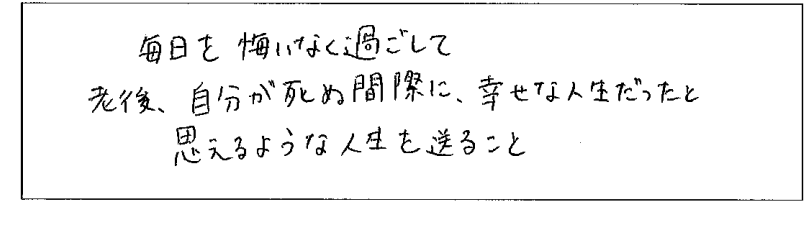 毎日を悔いなく過ごして
老後、自分が死ぬ間際に、幸せな人生だったと
思えるような人生を送ること